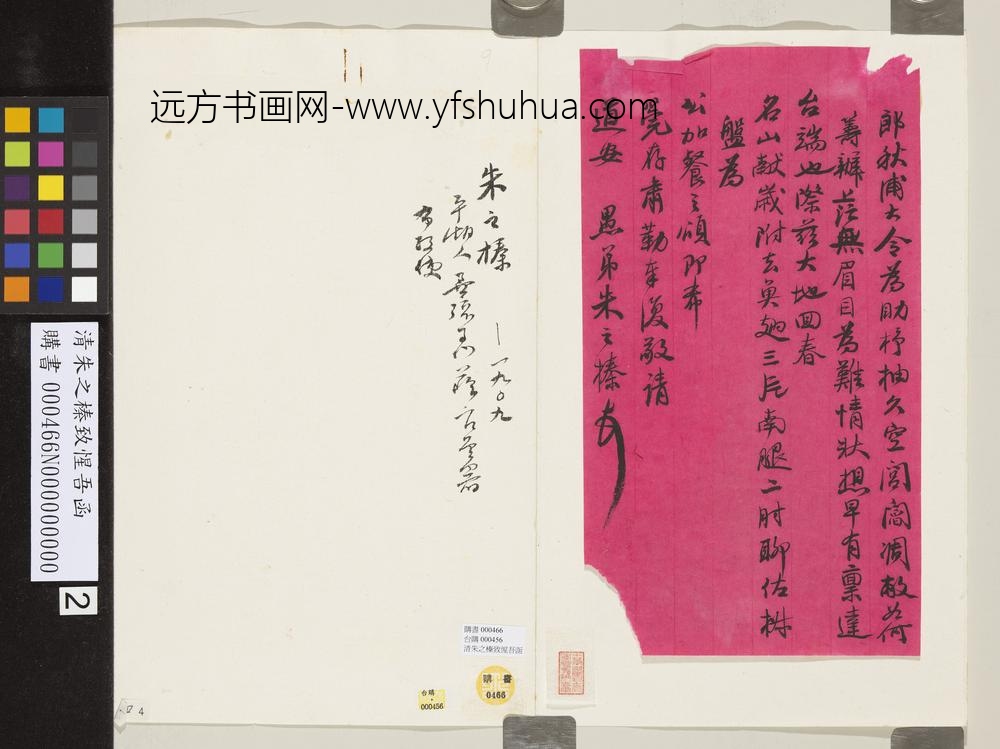 远方书画网-www.yfshuhua.com
郎秋浦大令為助杼抽久空閭閻凋敝如何
籌辦茫無眉目為難情狀想早有稟達
台端也際茲大地回春
名山獻歲附去魚翅三片南腿二肘聊佐椒
盤為
公加餐之頌即希
莞存肅勒奉復敬請
道安　愚弟朱之榛
朱之榛　—一九〇九
平湖人
清朱之榛致惺吾函
購書 000466N000000000
2
購書 000466
台購 000456
清朱之榛致惺吾函
購書
0466
台購
000456
4
9